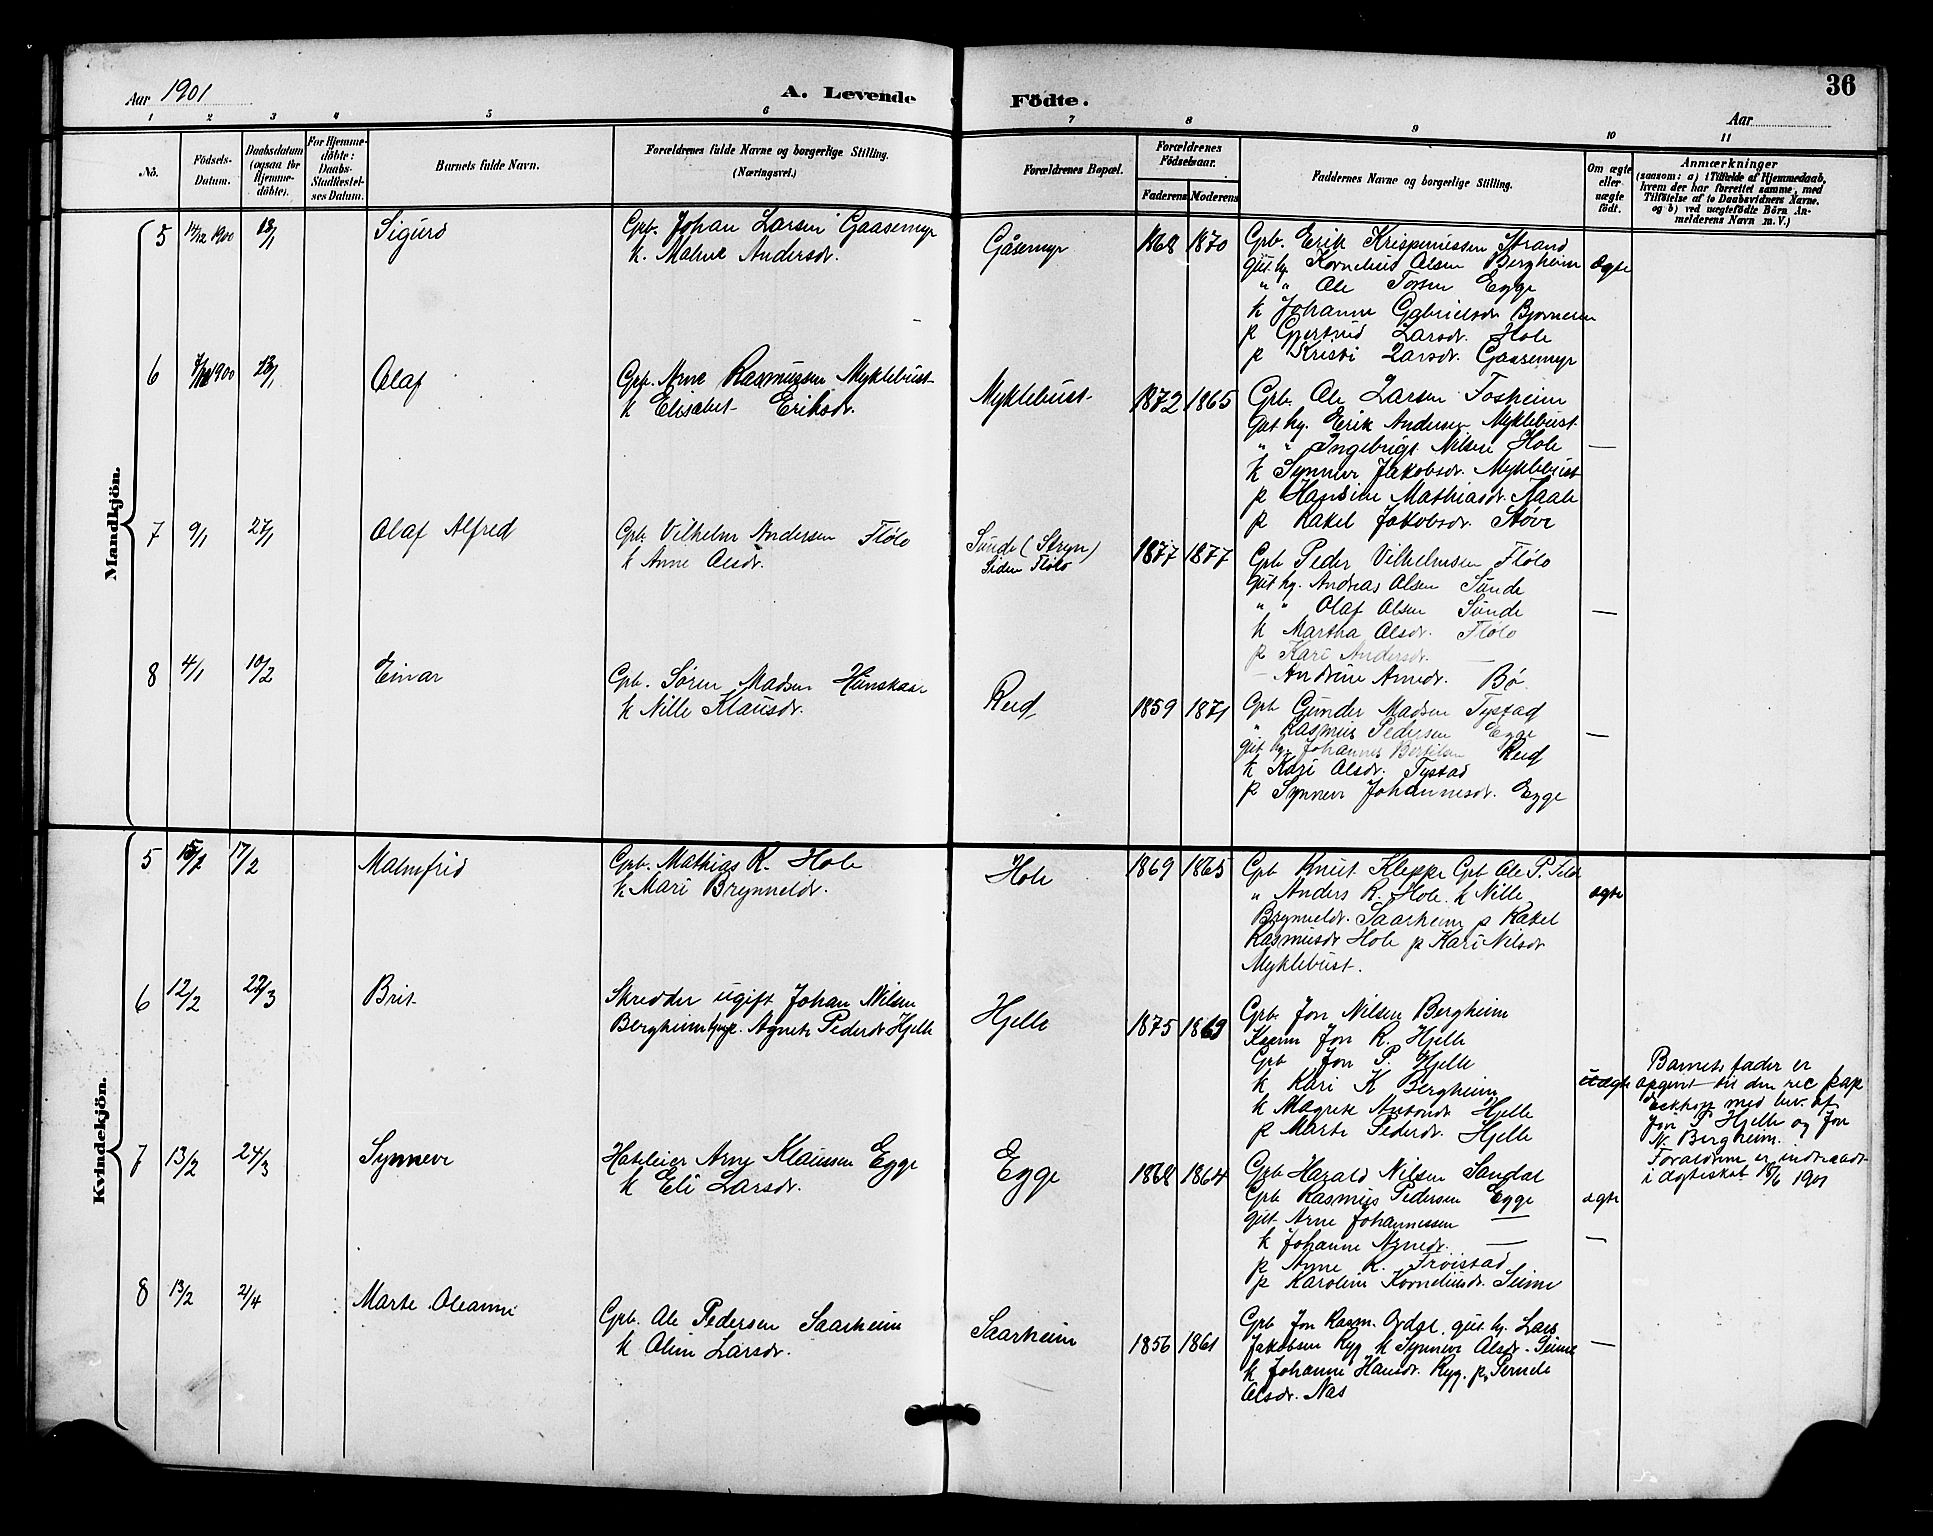 36
Aar 1901
A. Levende Födte.
Aar
1 2 3 4 5 6 7 8 9 10 11
No.
Födsels-Datum.
Daabsdatum (ogsaa for Hjemme-döbte).
For Hjemme-döbte: Daabs-Stadfæstel-ses Datum.
Barnets fulde Navn.
Forældrenes fulde Navne og borgerlige Stilling.
(Næringsvei.)
Forældrenes Bopæl.
Forældrenes Födselsaar.
Faderens
Moderens
Faddernes Navne og borgerlige Stilling.
Om ægte eller uægte födt.
Anmærkninger
(saasom: a) i Tilfælde af Hjemmedaab, hvem der har forrettet samme, med Tilföielse af to Daabsvidners Navne. og b) ved uægtefödte Börn An-melderens Navn m. V.)
Mandkjön.
5 14/12 1900 13/1 Sigurd
Gbr. Johan Larsen Gaasemyr
k. Malene Andersdr.
Gåsemyr 1868 1870
Gbr. Erik Krispinussen Strand
gut hj. Kornelius Olsen Bergheim
" " Ole Torsen Egge
k Johanne Gabrielsdr.
p Gjertrud Larsdr. Hole
p Kristi Larsdr. Gaasemyr
Ægte
6 13/1 Olaf
Gbr. Arne Rasmussen Myklebust
k Elisabet Eriksdr.
Myklebust 1872 1865
Gbr. Ole Larsen Fosheim
Gut hj. Erik Andersen Myklebust
" " Ingebrigt Nilsen Hole
k Synneve Jakobsdr. Myklebust
p Hansine Mathiasdr.
p Rakel Jakobsdr. Støve
—
7 9/1 27/1 Olaf Alfred
Gbr. Vilhelm Andersen Flölo
k Anne Olsdr.
Sunde (Stryn)
Siden Flölo
1877 1877
Gbr. Peder Vilhelmsen Flölo
gut hj. Andreas Olsen Sunde
" " Olaf Olsen Sunde
k Martha Olsdr. Flölo
p Kari Andersdr. —
— Andrine Arnedr. Bö
—
8 4/1 10/2 Einar
Gbr. Sören Madsen Hunskaar
k Nille Klausdr.
Reed 1859 1871
Gbr Gunder Madsen Tystad
" Rasmus Pedersen Egge
gut hj. Johannes Bertilsen Reed
k Kari Olsdr. Tystad
p Synneve Johannesdr. Egge
—
Kvindekjön.
5 17/2 Malmfrid
Gbr. Mathias R. Hole
k Mari Brynneldr.
Hole 1869 1865
Gbr Knut Kleppe Gbr Ole P.
" Anders R. Hole k Nille
Brynneldr. Saarheim p Rakel
Rasmusdr Hole p Kari Nilsdr
Myklebust.
ægte
6 12/2 22/3 Brit
Skredder ugift Johan Nilsen
Bergheim Agnete Pedersdr Hjelle
Hjelle 1875 1869
Gbr. Jon Nilsen Bergheim
Jon R. Hjelle
Gbr Jon P. Hjelle
k Kari K Bergheim
k Magrete Antondr Hjelle
p Marte Pedersdr. Hjelle
uægte
Barnets fader er
opgivet
med bev. af
Jon P Hjelle og Jon
N. Bergheim.
Foræeldrene er indtraadt
i ægteskab 18/6 1901
7 13/2 24/3 Synneve
Hoteleier Arne Klaussen Egge
k Eli Larsdr.
Egge 1868 1864
Gbr Harald Nilsen Sandal
Gbr Rasmus Pedersen Egge
gut Arne Johannessen —
k Johanne Arnedr. —
p Anne K. Tröistad
p Karoline Korneliusdr. Seime
ægte
—
8 13/2 2/4 Marte Oleanne
Gbr. Ole Pedersen Saarheim
k Oline Larsdr.
Saarheim 1856 1861
Gbr Jon Rasm. gut hj. Lars
Jakobsen Ryg k Synneve Olsdr. Seime
k Johanne Hansdr. Ryg. p. Pernele
Olsdr. Nas
—